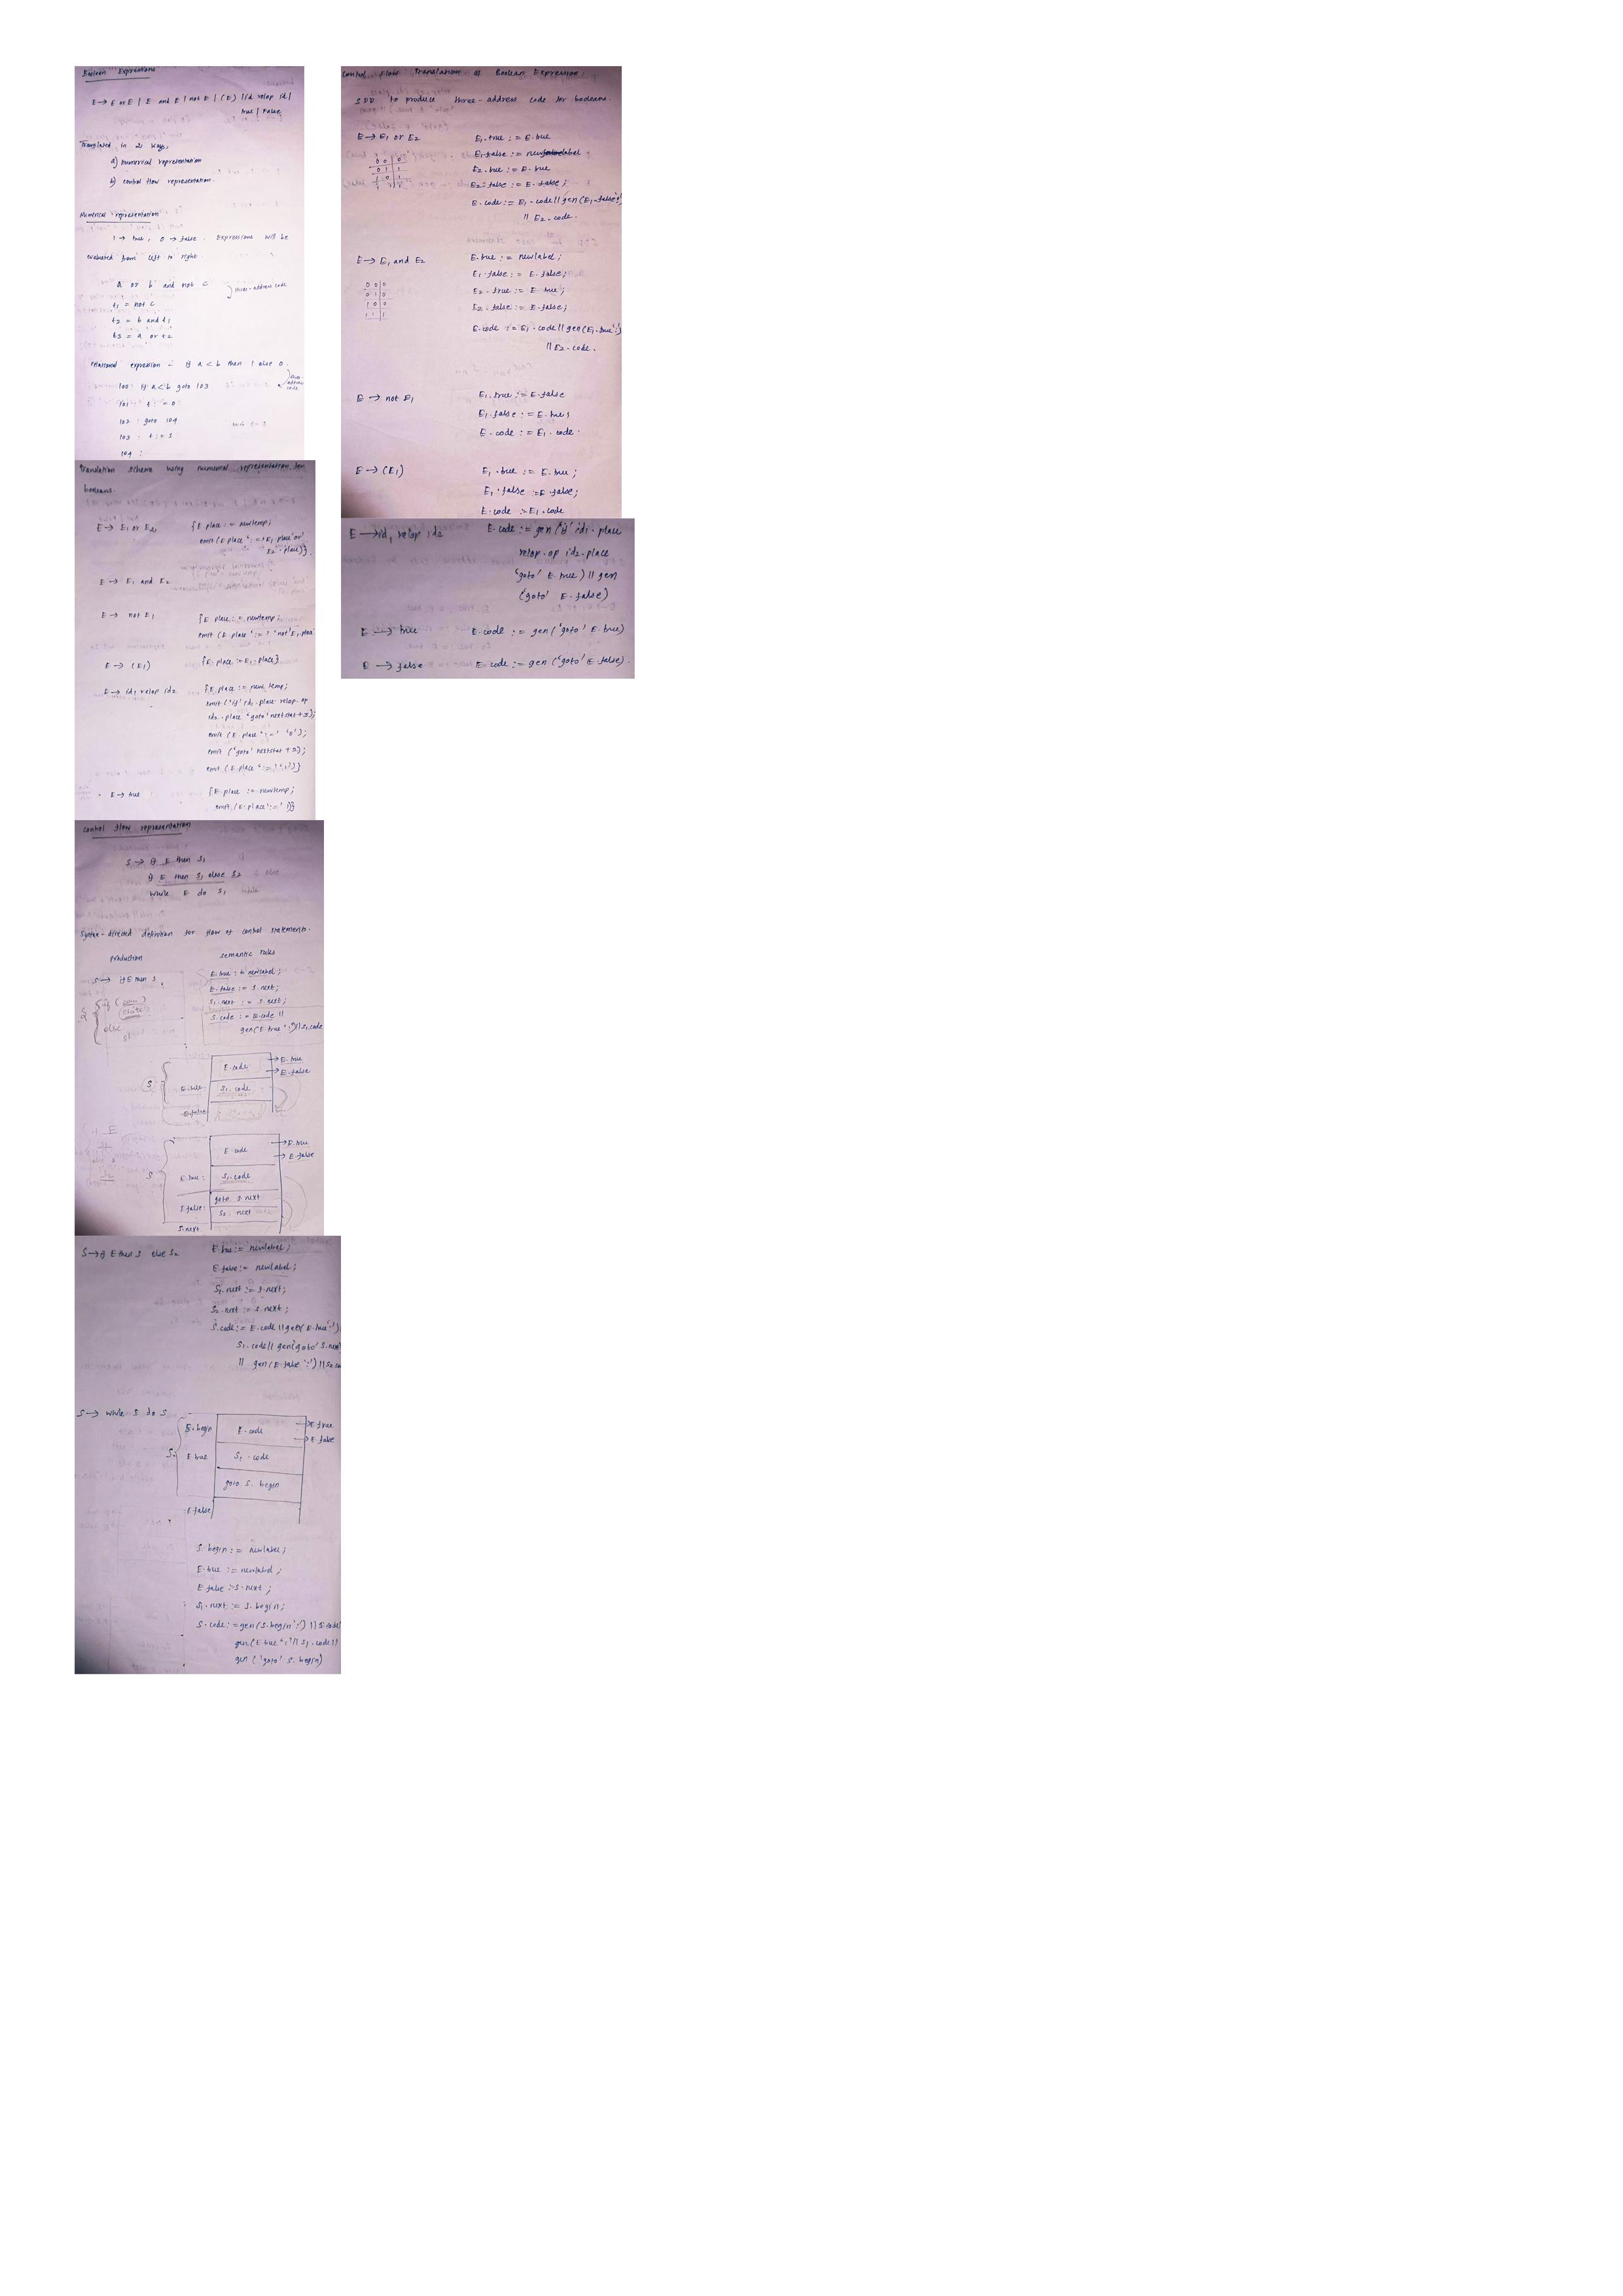 Boolean Expressions
E → E or E | E and E | not E | (E) | id relop id |
true | False
Translated in 2 ways,
a) numerical representation
b) control flow representation.
Numerical representation
1 → true, 0 → false. Expressions will be
evaluated from left to right.
a or b and not c
} three-address code
t1 = not c
t2 = b and t1
t3 = a or t2
relational expression - if a < b then 1 else 0.
100: if a < b goto 103
101: t := 0
102: goto 104
103: t := 1
104:
Translation scheme using numerical representation for
booleans.
E → E1 or E2 {E.place := newtemp;
emit (E.place ':=' E1.place 'or'
E2.place)}.
E → E1 and E2
E → not E1 {E.place := newtemp;
emit (E.place ':=' 'not' E1.place
E → (E1) {E.place := E1.place}
E → id1 relop id2 {E.place := newtemp;
emit ('if' id1.place relop.op
id2.place 'goto' nextstat+3);
emit (E.place ':=' '0');
emit ('goto' nextstat+2);
emit (E.place ':=' '1')}
E → true {E.place := newtemp;
emit (E.place ':=' 1)}
Control flow representation
S → if E then S1
if E then S1 else S2
while E do S1
Syntax-directed definition for flow of control statements.
Production semantic rules
S → if E then S1 E.true := newlabel;
E.false := S.next;
S1.next := S.next;
S.code := E.code ||
gen(E.true ':') || S1.code
E.code → E.true
→ E.false
S
E.true: S1.code
E.false
E.code → E.true
→ E.false
S
E.true: S1.code
goto S.next
E.false: S2.next
S.next
S → if E then S else S2 E.true := newlabel;
E.false := newlabel;
S1.next := S.next;
S2.next := S.next;
S.code := E.code || gen(E.true ':')
S1.code || gen('goto' S.next
|| gen(E.false ':') || S2.co
S → while S do S
S.begin E.code → E.true
→ E.false
E.true S1.code
goto S.begin
E.false
S.begin := newlabel;
E.true := newlabel;
E.false := S.next;
S1.next := S.begin;
S.code := gen(S.begin ':') || E.code
gen(E.true ':') || S1.code ||
gen ('goto' S.begin)
Control Flow Translation of Boolean Expression:
SDD to produce three-address code for booleans.
E → E1 or E2 E1.true := E.true
E1.false := newlabel
0 0 0
E2.true := E.true
0 1 1
E2.false := E.false;
1 0 1
1 1 1
E.code := E1.code || gen(E1.false':')
|| E2.code.
E → E1 and E2 E.true := newlabel;
E1.false := E.false;
0 0 0
E2.true := E.true;
0 1 0
E2.false := E.false;
1 0 0
1 1 1
E.code := E1.code || gen(E1.true':')
|| E2.code.
E → not E1 E1.true := E.false
E1.false := E.true;
E.code := E1.code.
E → (E1) E1.true := E.true;
E1.false := E.false;
E.code := E1.code
E → id1 relop id2 E.code := gen('if' id1.place
relop.op id2.place
'goto' E.true) || gen
('goto' E.false)
E → true E.code := gen('goto' E.true)
E → false E.code := gen('goto' E.false).